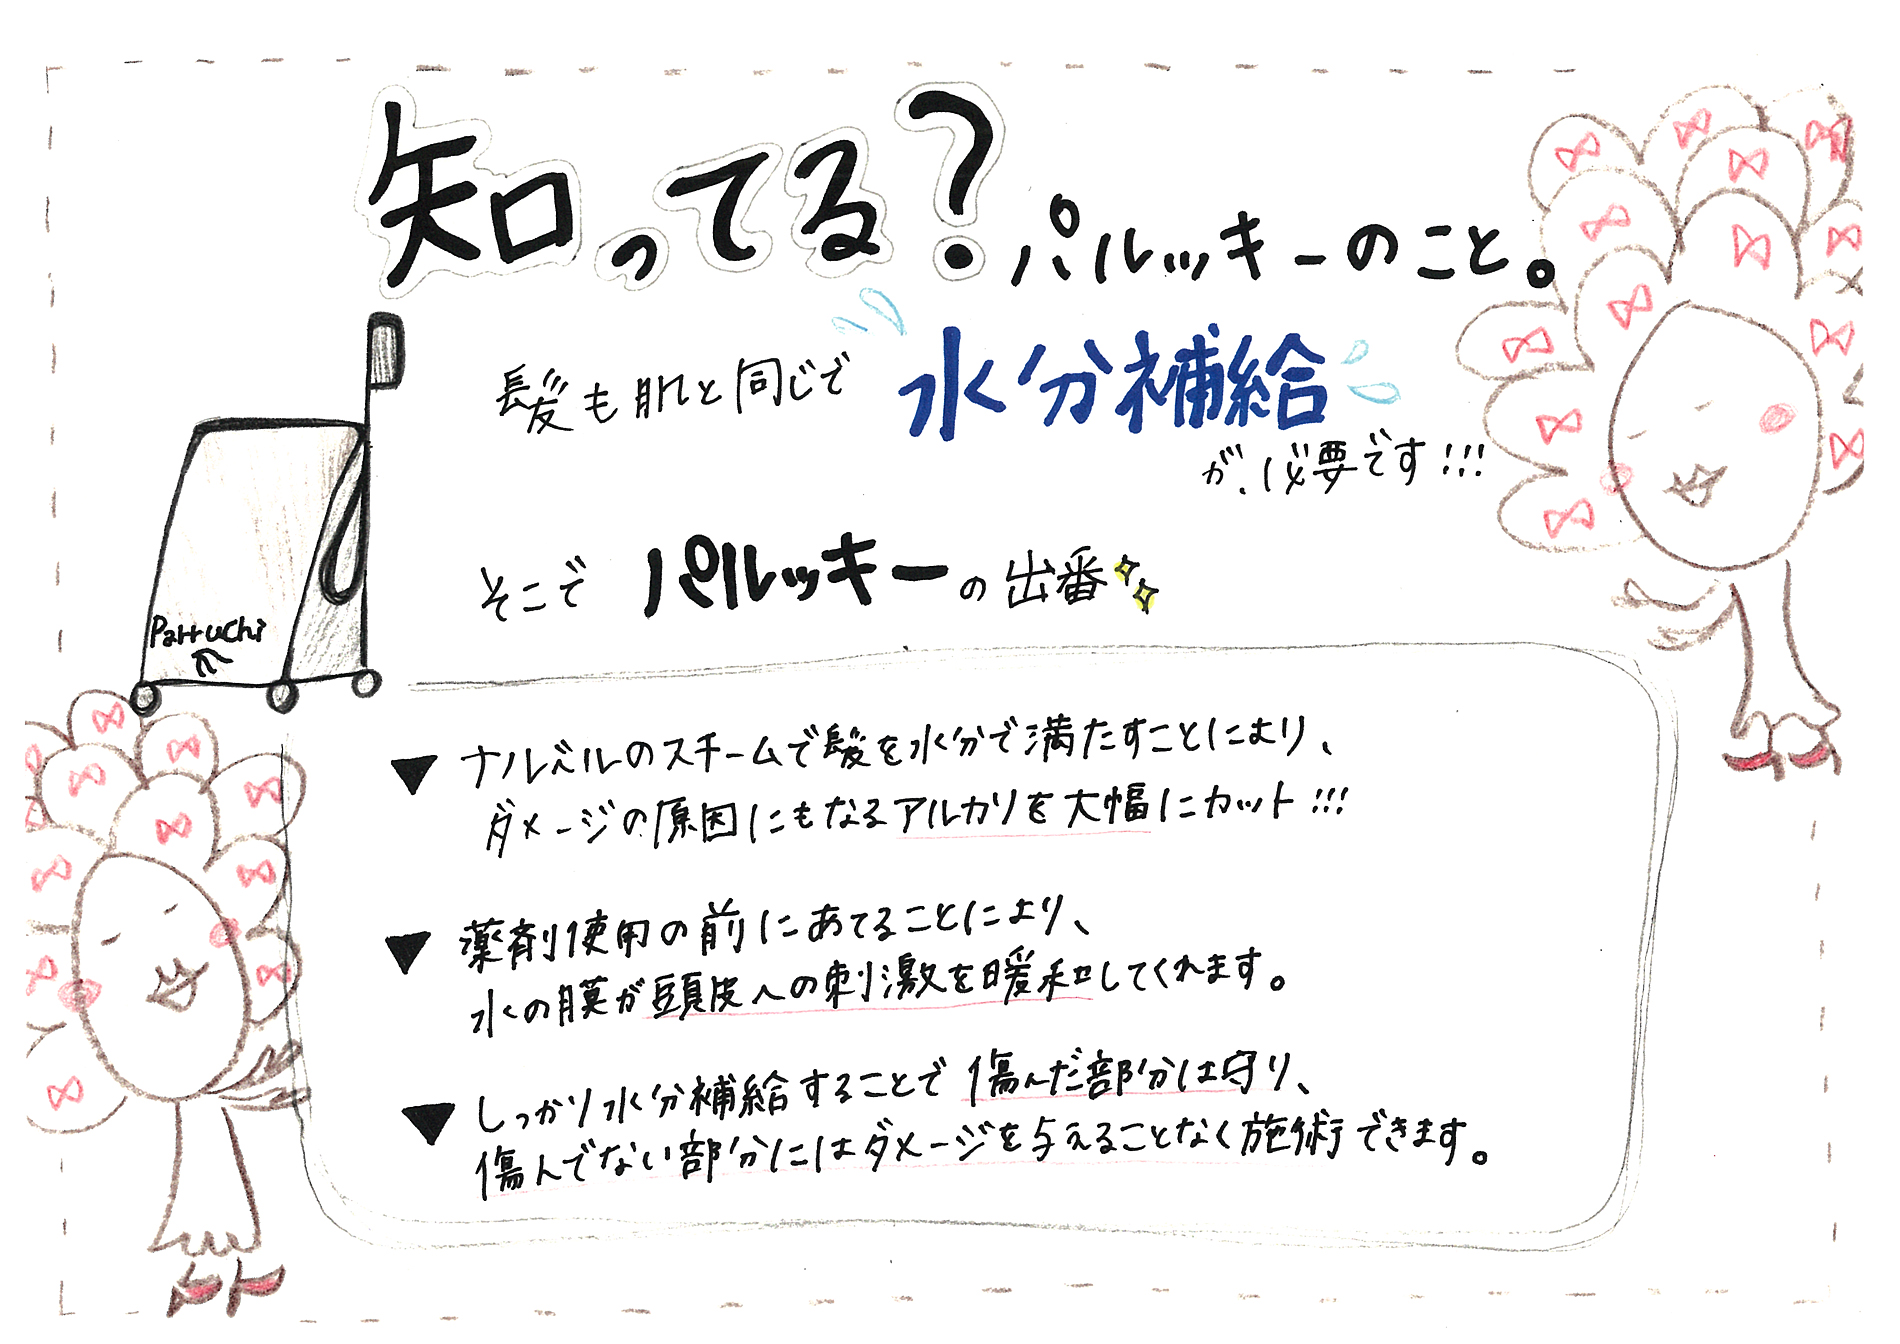 知ってる？パルッキーのこと。
髪も肌と同じで 水分補給
が必要です!!!
そこで パルッキーの出番
Parruchi
▼ ナルベルのスチームで髪を水分で満たすことにより、
ダメージの原因にもなるアルカリを大幅にカット!!!
▼ 薬剤使用の前にあてることにより、
水の膜が頭皮への刺激を暖和してくれます。
▼ しっかり水分補給することで 傷んだ部分は守り、
傷んでない部分にはダメージを与えることなく施術できます。